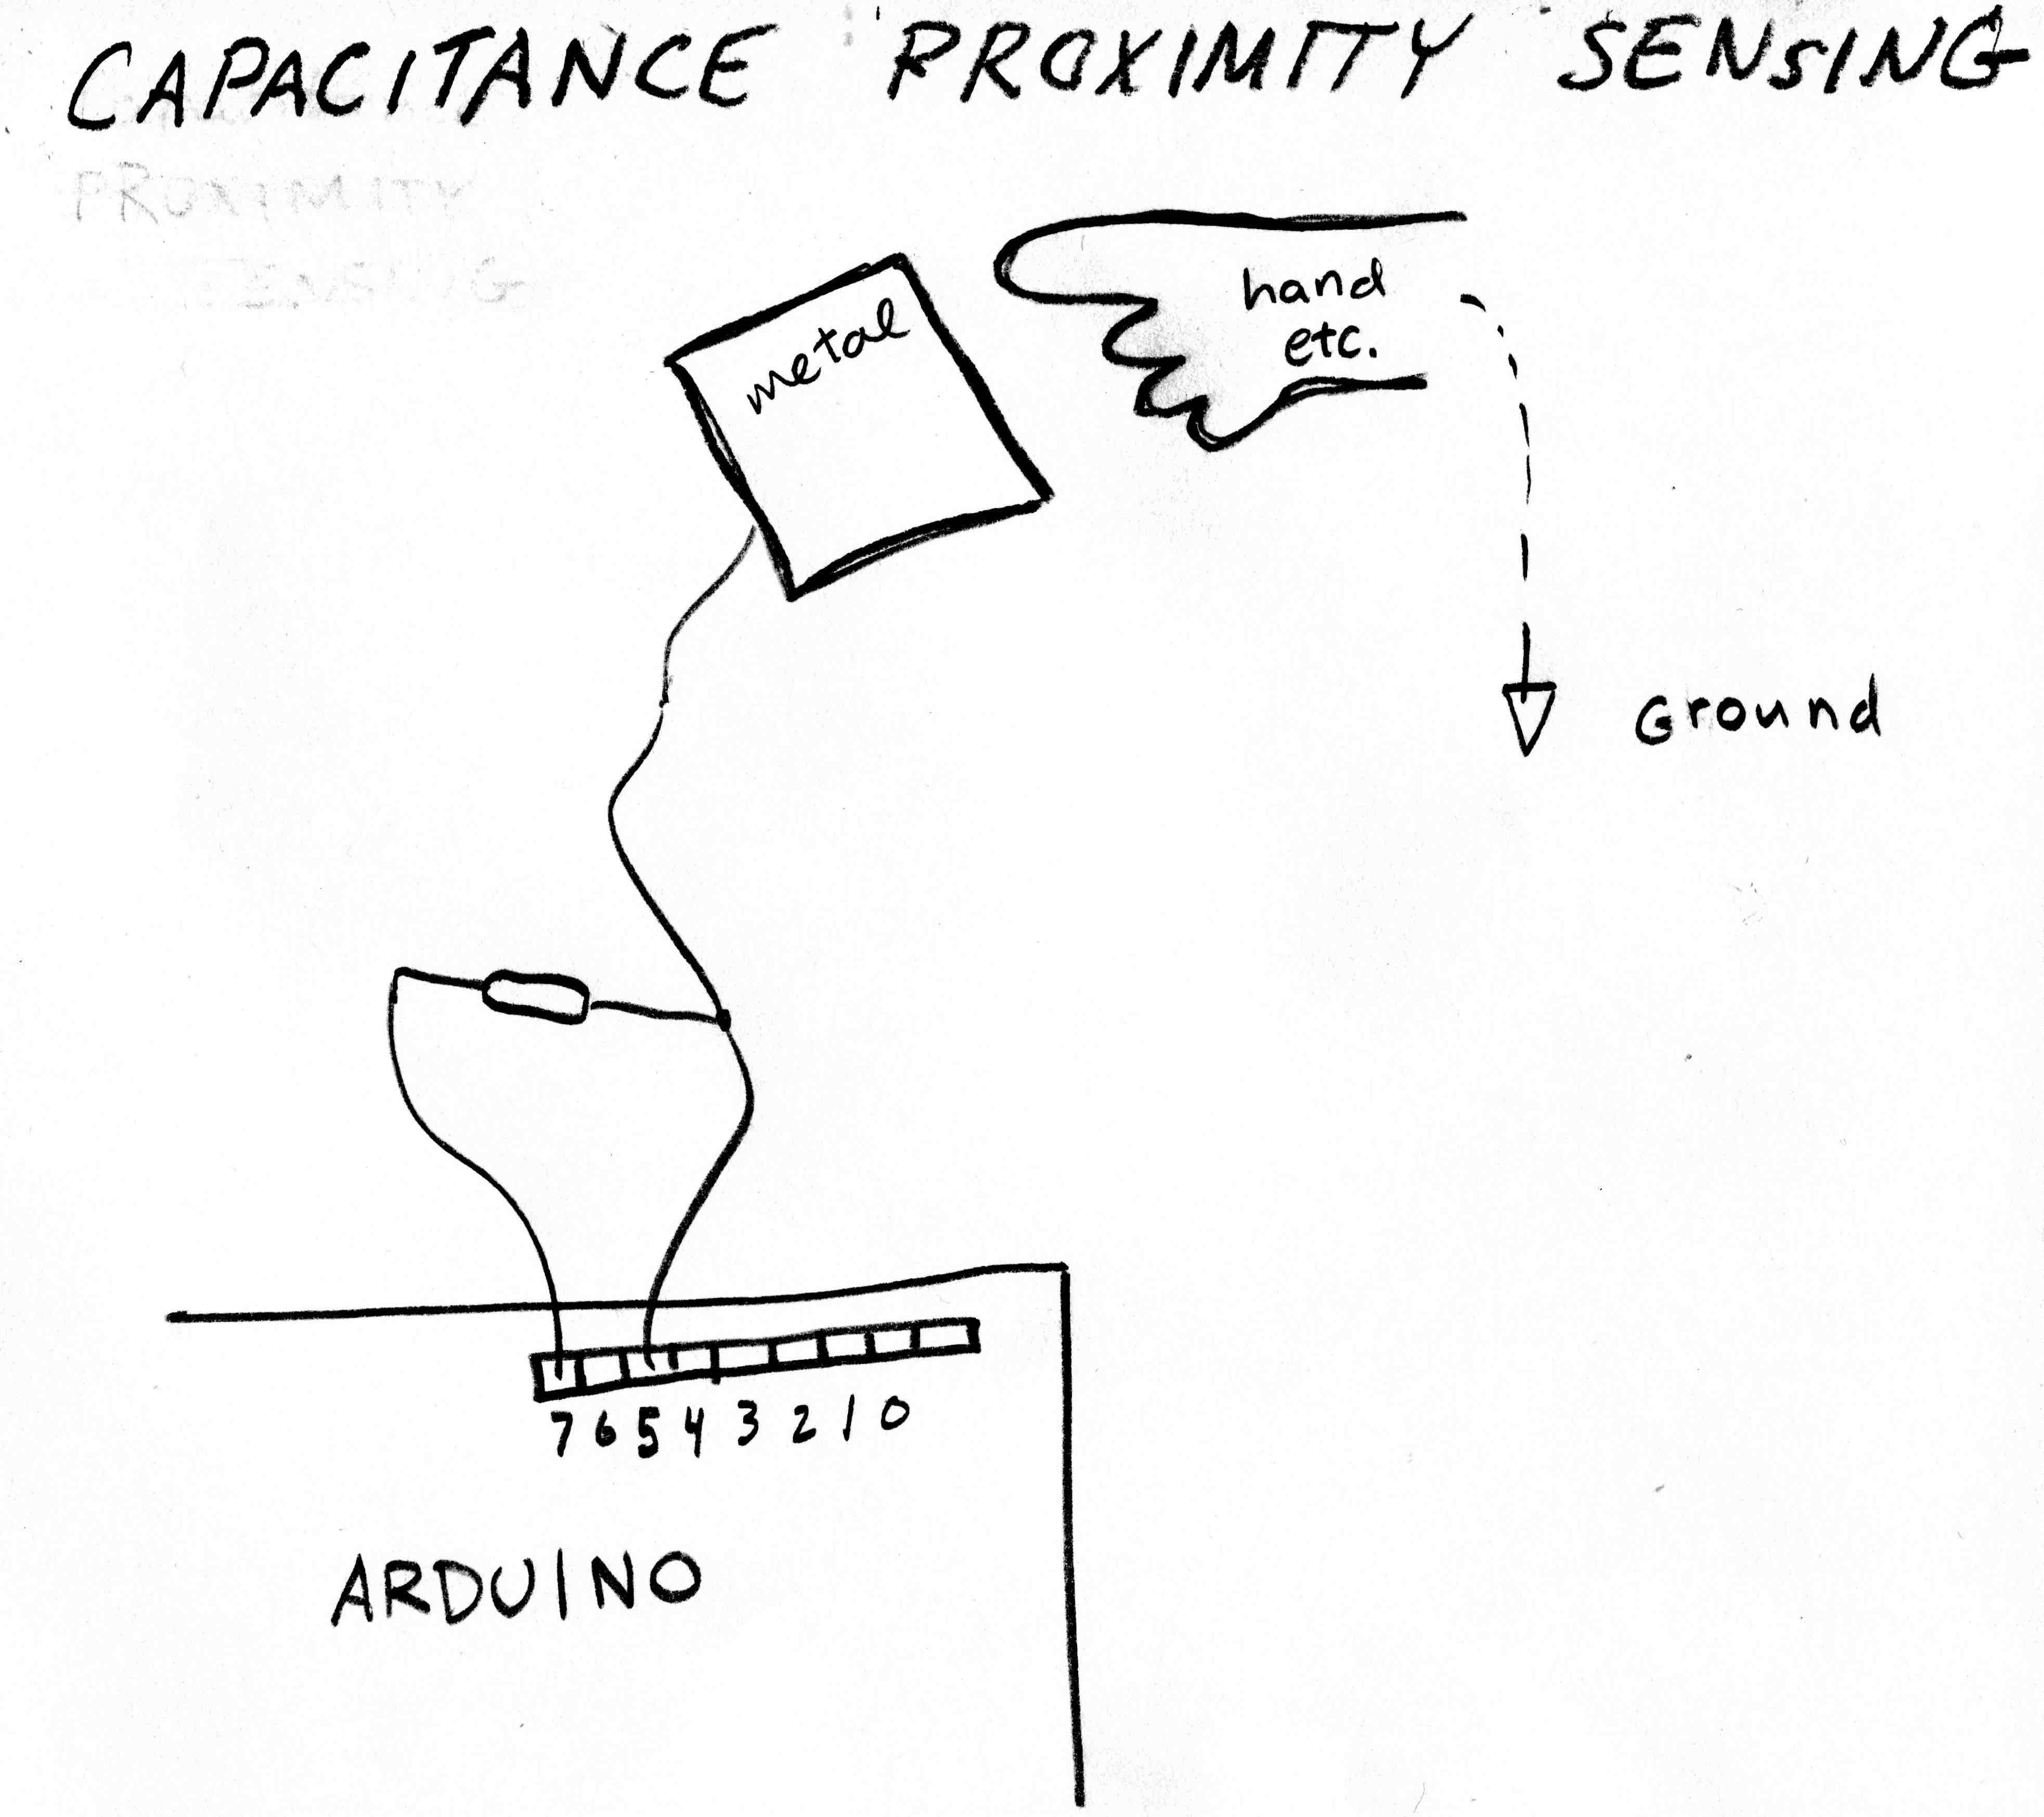 CAPACITANCE PROXIMITY SENSING
PROXIMITY
SENSING
metal
hand
etc.
Ground
7 6 5 4 3 2 1 0
ARDUINO